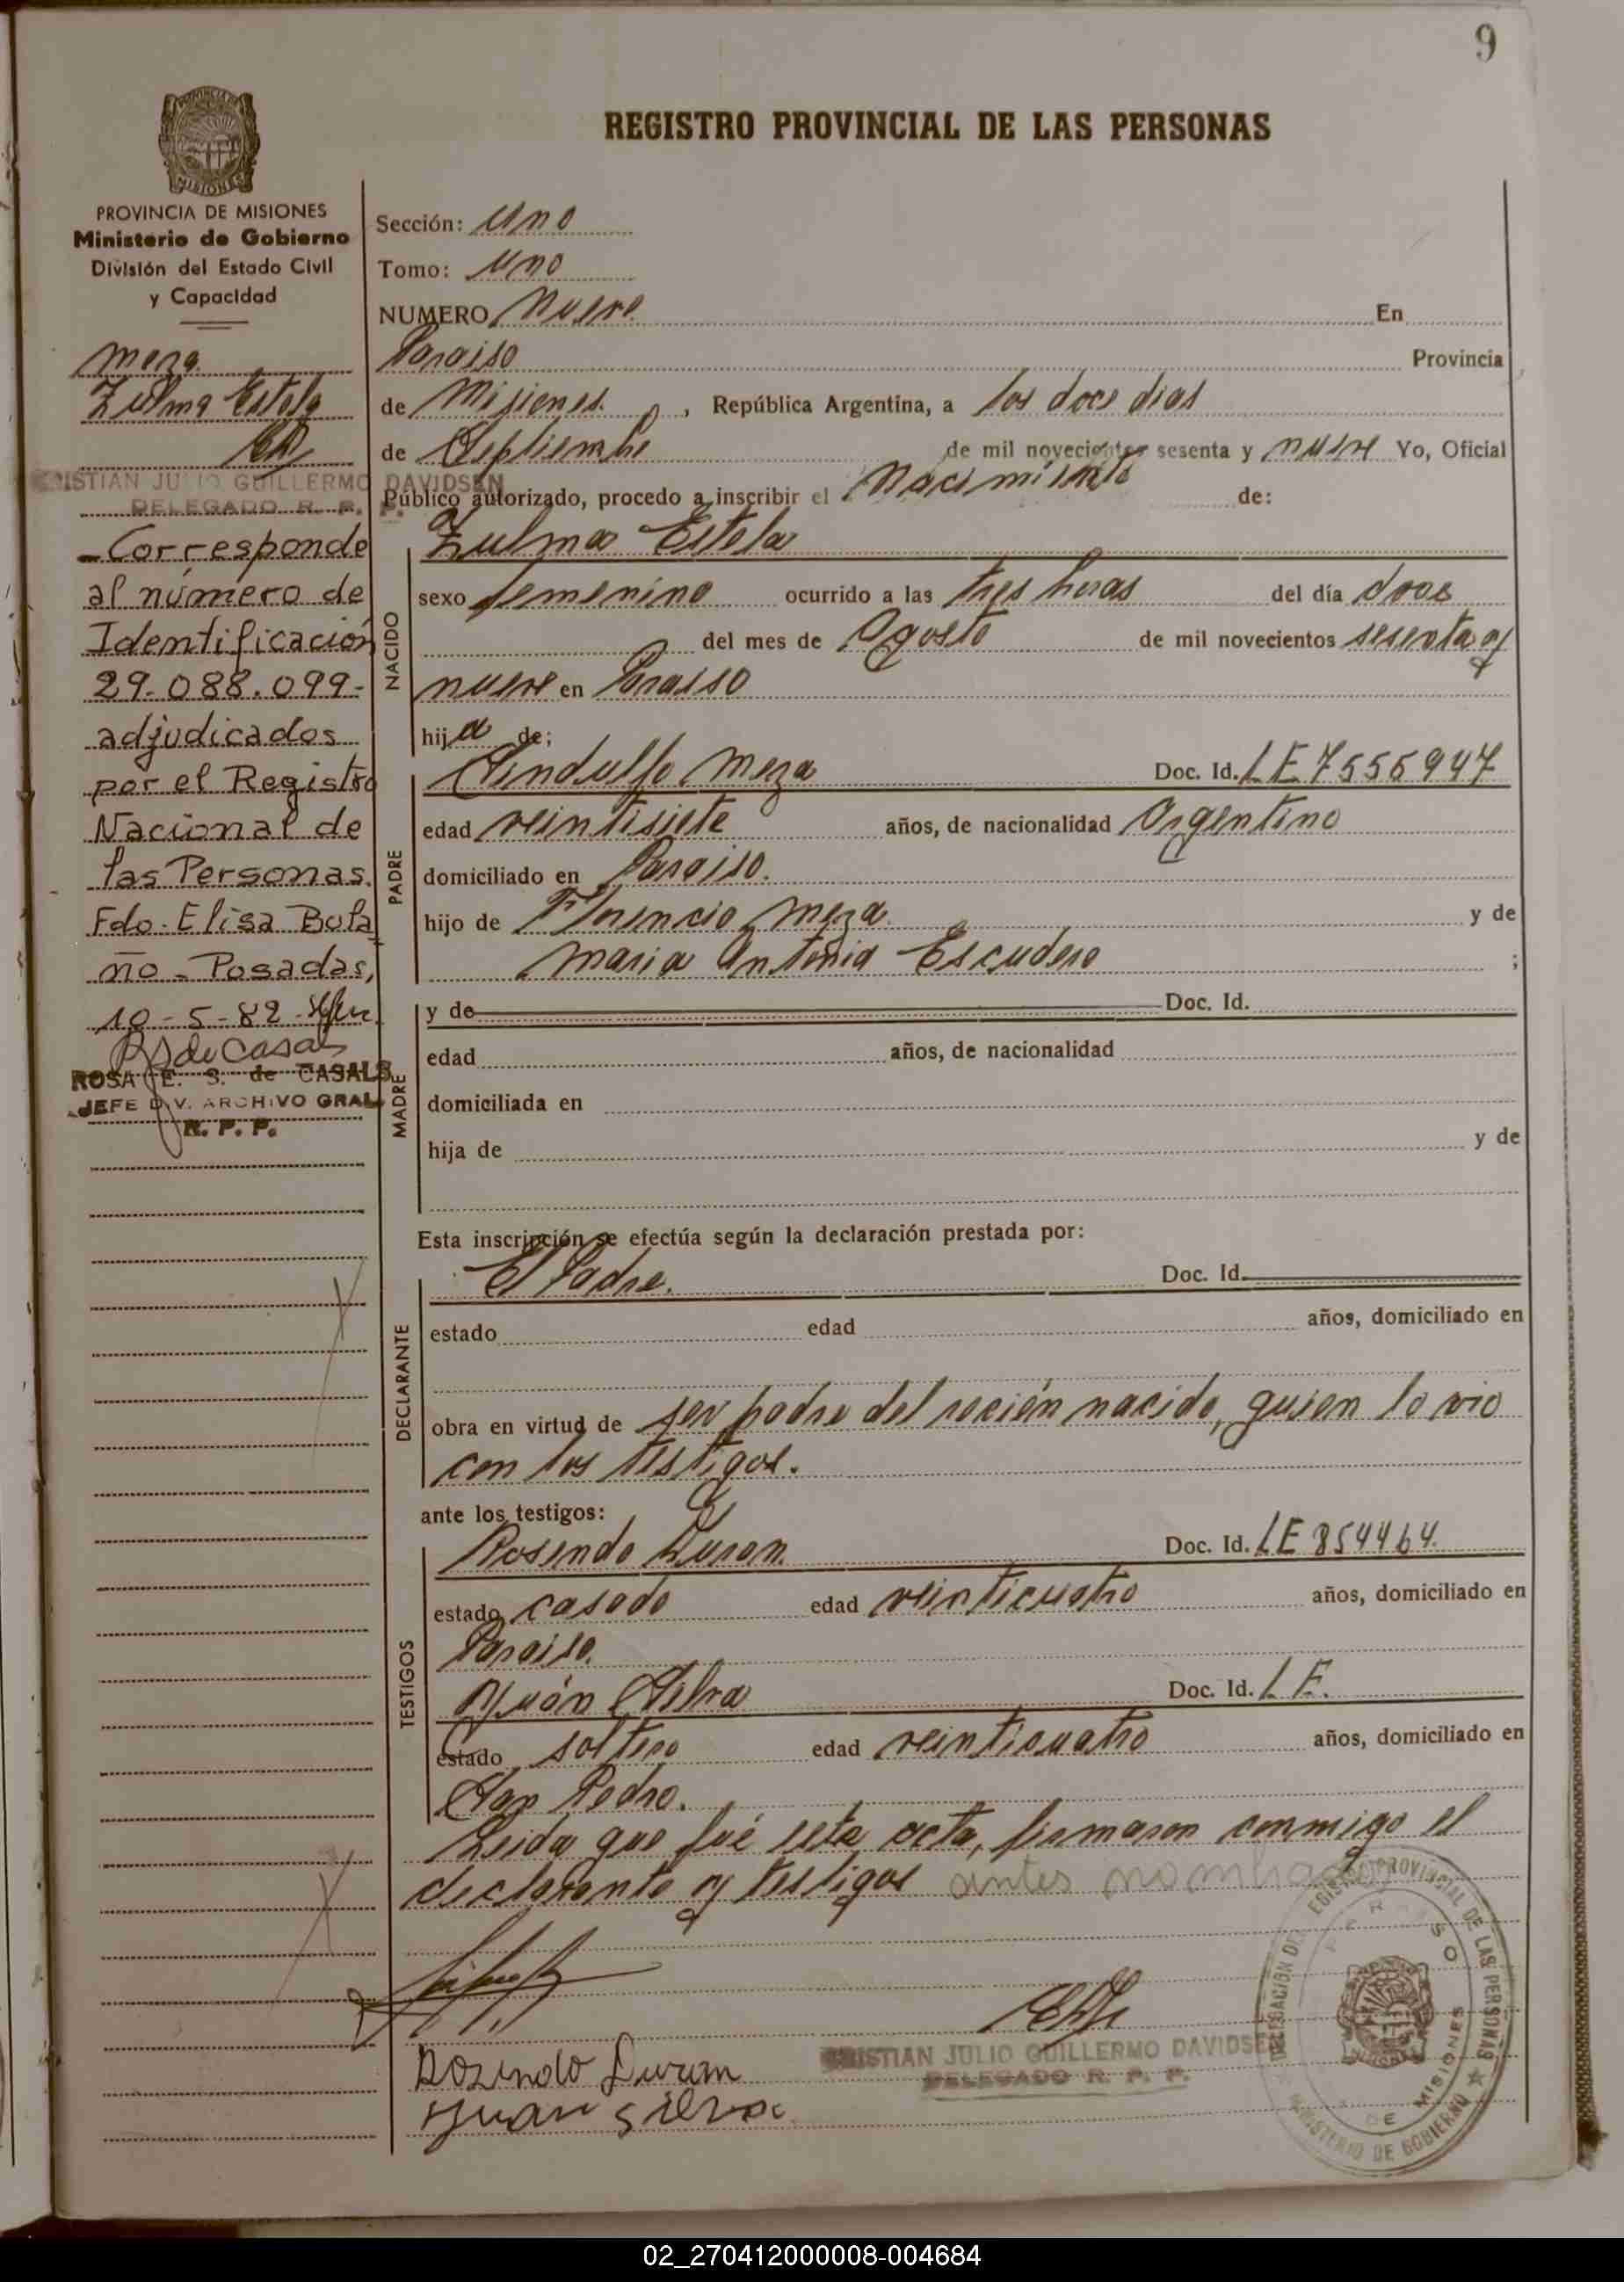 9
REGISTRO PROVINCIAL DE LAS PERSONAS
PROVINCIA DE MISIONES
Ministerio de Gobierno
División del Estado Civil
y Capacidad
Meza
Zulma Estela
CRISTIAN JULIO GUILLERMO DAVIDSEN
DELEGADO R. P. P.
- Corresponde
al número de
Identificación
29.088.099-
adjudicados
por el Registro
Nacional de
las Personas.
Fdo. Elisa Bola
ño - Posadas,
10-5-82-
RSdeCasals
ROSA E. S. de CASALS
JEFE DIV. ARCHIVO GRAL
R. P. P.
Sección: Uno
Tomo: Uno
NUMERO Nueve En
Paraiso Provincia
de Misiones, República Argentina, a los doce dias
de Septiembre de mil novecientos sesenta y nueve Yo, Oficial
Público autorizado, procedo a inscribir el Nacimiento de:
NACIDO
Zulma Estela
sexo femenino ocurrido a las tres horas del día doce
del mes de Agosto de mil novecientos sesenta y
nueve en Paraiso
hija de;
PADRE
Sindulfo Meza Doc. Id. LE 7556947
edad veintisiete años, de nacionalidad Argentino
domiciliado en Paraiso.
hijo de Florencio Meza y de
Maria Antonia Escudero ;
MADRE
y de Doc. Id.
edad años, de nacionalidad
domiciliada en
hija de y de
Esta inscripción se efectúa según la declaración prestada por:
DECLARANTE
El Padre. Doc. Id.
estado edad años, domiciliado en
obra en virtud de ser padre del recién nacido, quien lo vio
con los testigos.
ante los testigos:
TESTIGOS
Rosendo Duran. Doc. Id. LE 854464.
estado casado edad veinticuatro años, domiciliado en
Paraiso.
Juán Silva Doc. Id. LE.
estado soltero edad veinticuatro años, domiciliado en
San Pedro.
Leida que fué esta acta, firmaron conmigo el
declarante y testigos antes nombrados
Rozendo Duram
Juan Silva
CRISTIAN JULIO GUILLERMO DAVIDSEN
DELEGADO R. P. P.
DELEGACION DEL REGISTRO PROVINCIAL DE LAS PERSONAS
MINISTERIO DE GOBIERNO
PARAISO
DE MISIONES
02_270412000008-004684